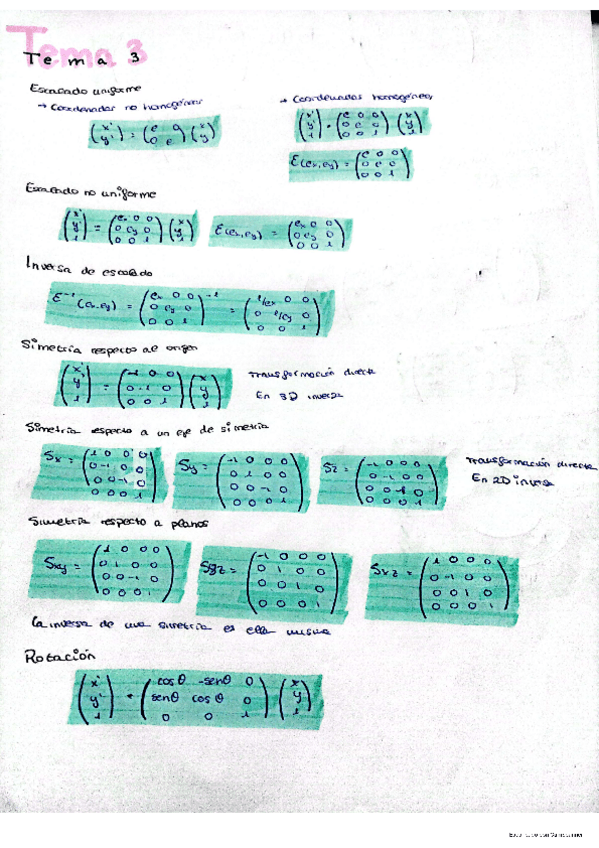 Tema 3
Escalado uniforme
→ Coordenadas no homogéneas
(x' y') = (e 0; 0 e) (x y)
→ Coordenadas homogéneas
(x' y' 1) = (e 0 0; 0 e 0; 0 0 1) (x y 1)
E(ex,ey) = (e 0 0; 0 e 0; 0 0 1)
Escalado no uniforme
(x' y' 1) = (ex 0 0; 0 ey 0; 0 0 1) (x y 1)
E(ex,ey) = (ex 0 0; 0 ey 0; 0 0 1)
Inversa de escalado
E⁻¹(ex,ey) = (ex 0 0; 0 ey 0; 0 0 1)⁻¹ = (1/ex 0 0; 0 1/ey 0; 0 0 1)
Simetría respecto al origen
(x' y' 1) = (-1 0 0; 0 -1 0; 0 0 1) (x y 1)
Transformación directa
En 3D inversa
Simetría respecto a un eje de simetría
Sx = (1 0 0 0; 0 -1 0 0; 0 0 -1 0; 0 0 0 1)
Sy = (-1 0 0 0; 0 1 0 0; 0 0 -1 0; 0 0 0 1)
Sz = (-1 0 0 0; 0 -1 0 0; 0 0 1 0; 0 0 0 1)
Transformación directa
En 2D inversa
Simetría respecto a planos
Sxy = (1 0 0 0; 0 1 0 0; 0 0 -1 0; 0 0 0 1)
Syz = (-1 0 0 0; 0 1 0 0; 0 0 1 0; 0 0 0 1)
Sxz = (1 0 0 0; 0 -1 0 0; 0 0 1 0; 0 0 0 1)
La inversa de una simetría es ella misma
Rotación
(x' y' 1) = (cosθ -senθ 0; senθ cosθ 0; 0 0 1) (x y 1)